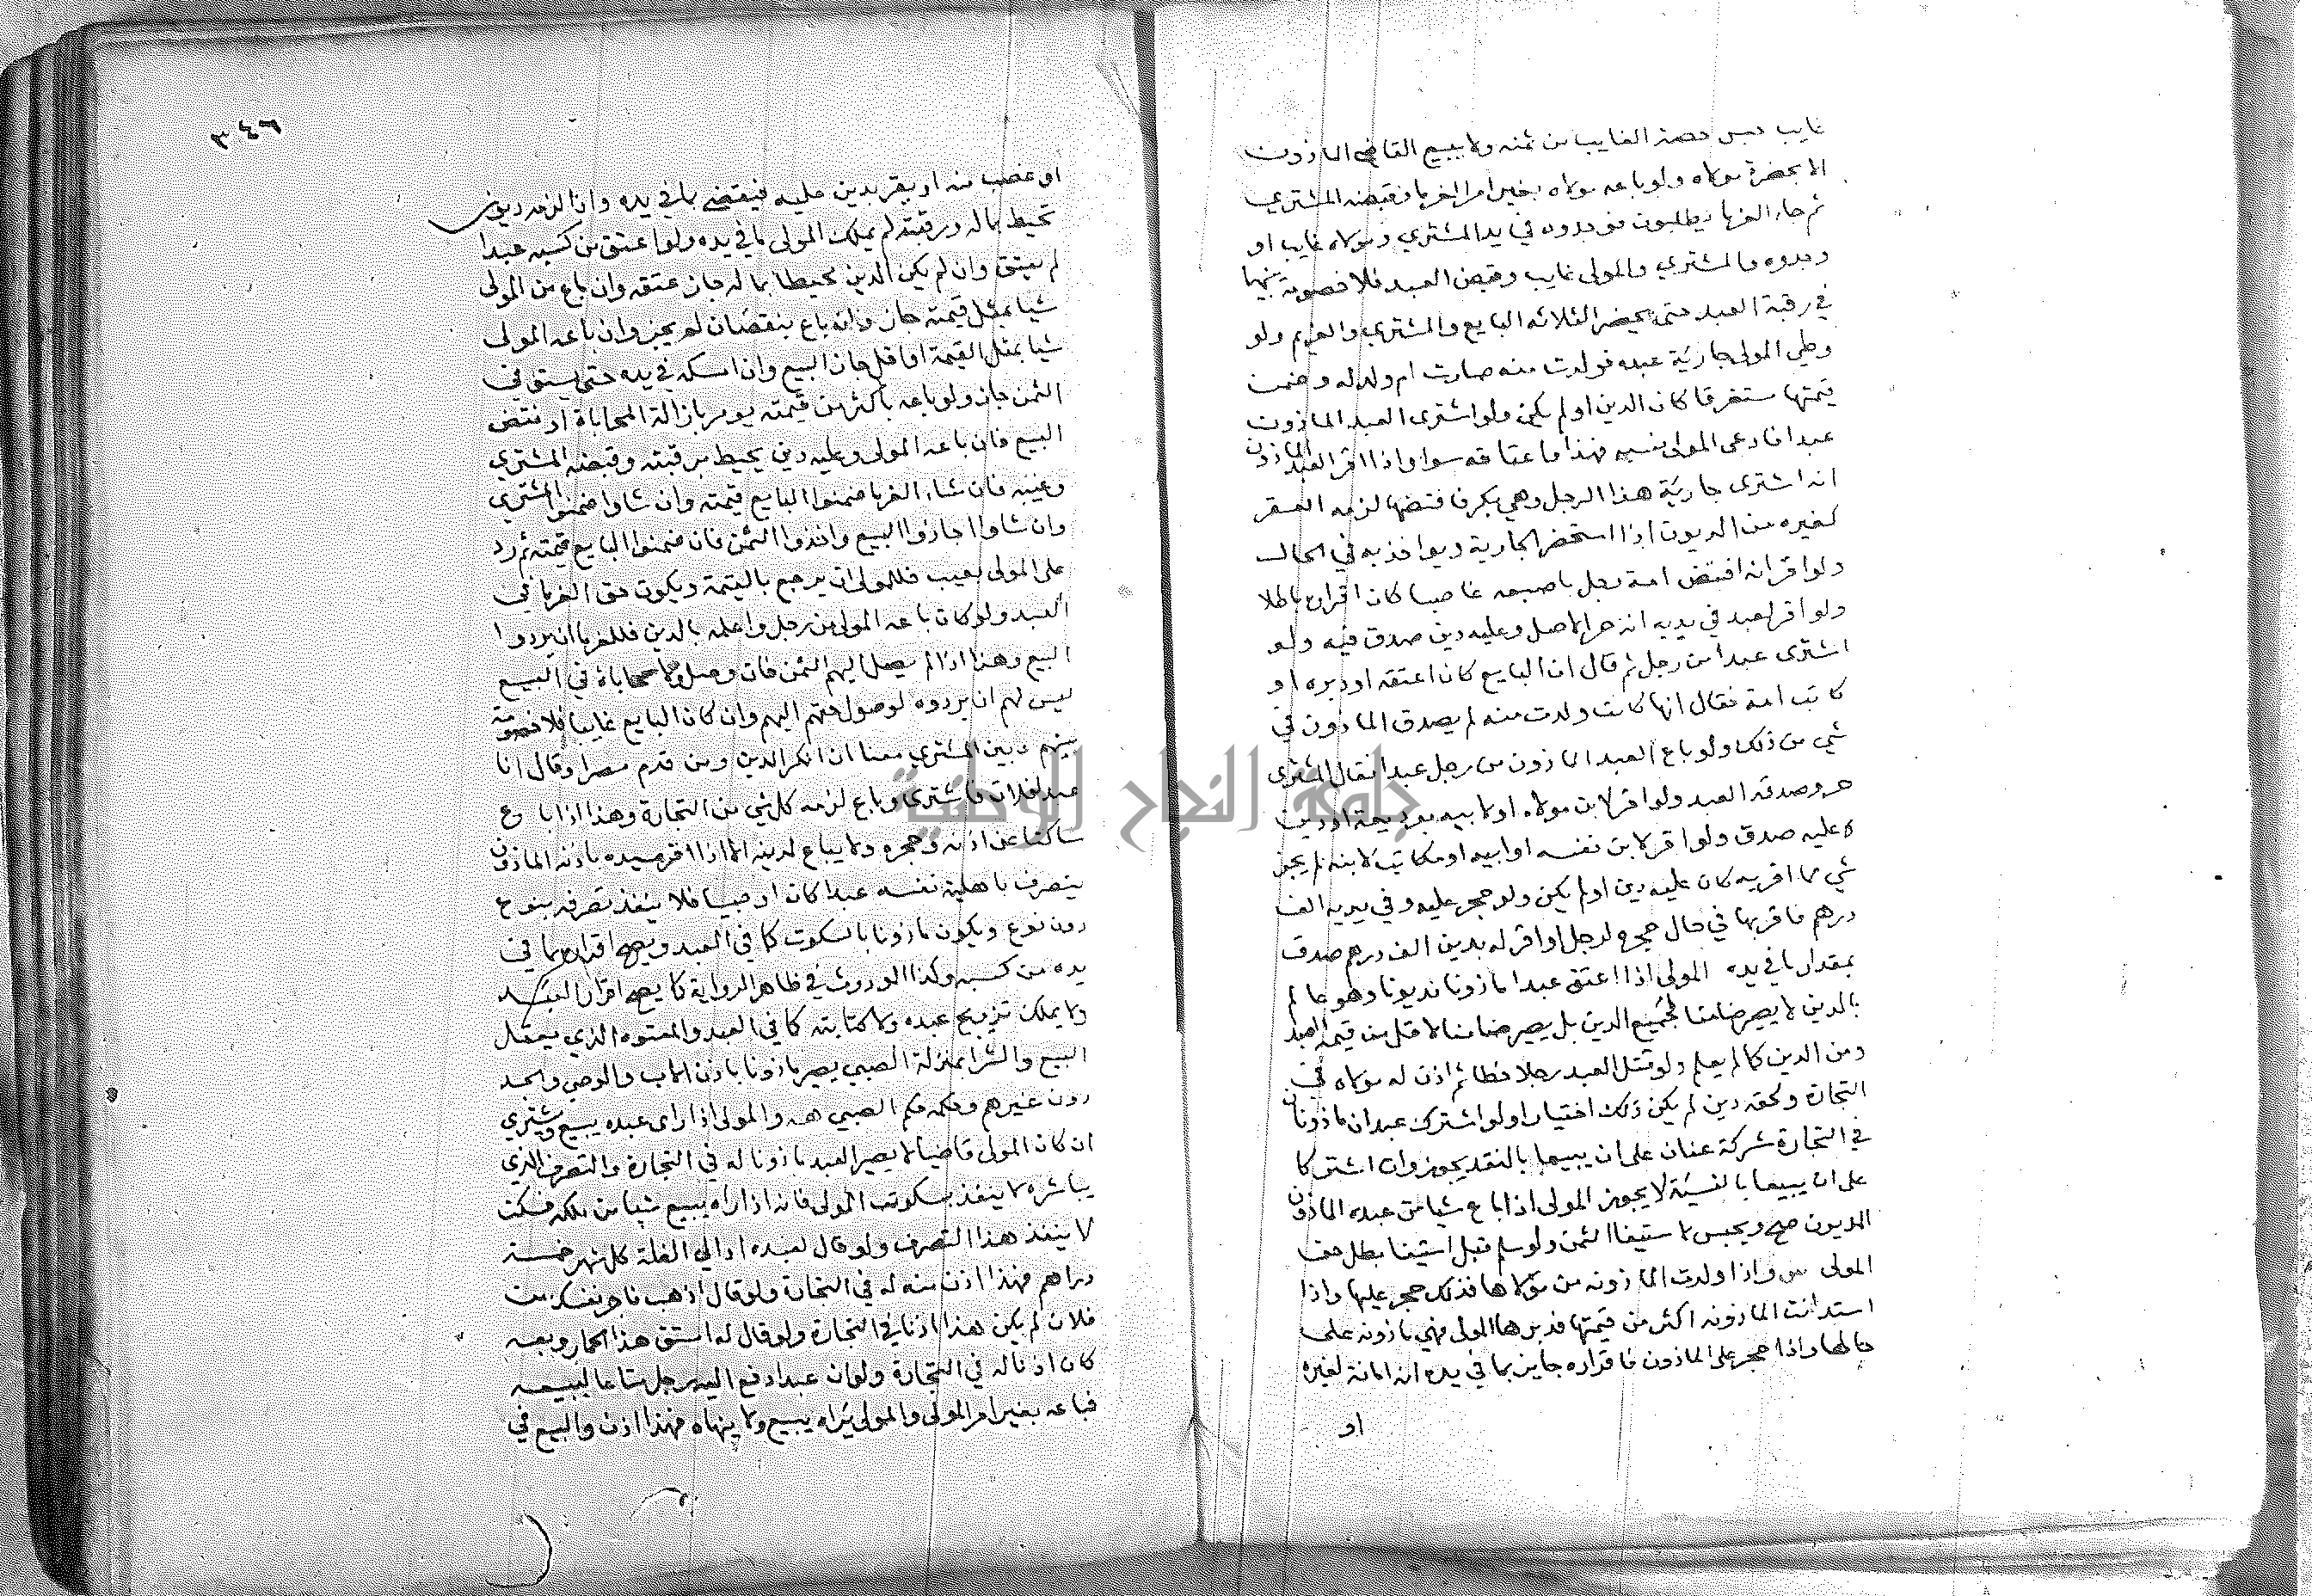 غايب حبس حصة الغايب من ثمنه ولا يبيع القاضي الماذون
الا بحضرة مولاه ولو باعه مولاه بغير امر الغرما فقبضه المشتري
ثم جاء الغرما يطلبون فوجدوه في يد المشتري ومولاه غايب او
وجدوه والمشتري والمولى غايب وقبض العبد فلا خصومة بينهما
في رقبة العبد حتى يحضر الثلاثه البايع والمشتري والغريم ولو
وطي المولى جارية عبده فولدت منه صارت ام ولد له وضمن
قيمتها مستغرقا كان الدين او لم يكن ولو اشترى العبد الماذون
عبدا فادعى المولى نسبه فهذا واعتاقه سوا واذا اقر العبد الماذون
انه اشترى جارية هذا الرجل وهي بكر فافتضها لزمه العقر
كغيره من الديون اذا استحضر الجارية ويواخذ به في الحال
ولو اقر انه افتض امة رجل باصبعه غاصبا كان اقراره باطلا
ولو اقر لعبد في يديه انه حر الاصل وعليه دين صدق فيه ولو
اشترى عبدا من رجل ثم قال ان البايع كان اعتقه او دبره او
كاتب امة فقال انها كانت ولدت منه لم يصدق الماذون في
شي من ذلك ولو باع العبد الماذون من رجل عبدا فقال المشتري
حر وصدقه العبد ولو اقر لابن مولاه او لابيه بوديعة او دين
لا عليه صدق ولو اقر لابن نفسه او ابيه او مكاتب لابنه لم يجز
شي مما اقر به كان عليه دين او لم يكن ولو حجر عليه وفي يديه الف
درهم فاقر بها في حال حجره لرجل او اقر له بدين الف درهم صدق
بمقدار ما في يده المولى اذا اعتق عبدا ماذونا مديونا وهو عالم
بالدين لا يصير ضامنا لجميع الدين بل يصير ضامنا لاقل من قيمة العبد
ومن الدين كما لم يعلم ولو قتل العبد رجلا خطا ثم اذن له مولاه في
التجارة ولحقه دين لم يكن ذلك اختيارا ولو اشترك عبدان ماذونان
في التجارة شركة عنان على ان يبيعا بالنقد يجوز وان اشتركا
على ان يبيعا بالنسيئة لا يجوز المولى اذا باع شيا من عبده الماذون
المديون صح ويحبس لاستيفا الثمن ولو سلم قبل استيفا بطل حق
المولى واذا ولدت الماذونه من مولاها فذلك حجر عليها واذا
استدانت الماذونه اكثر من قيمتها فدبرها المولى فهي ماذونه على
حالها واذا حجر على الماذون فاقراره جايز بما في يده انه امانة لغيره
او
٣٤٦
او غصب منه او يقر بدين عليه فيقضي بما في يده وان لزمه ديون
تحيط بماله ورقبته لم يملك المولى ما في يده ولو اعتق من كسبه عبدا
لم يعتق وان لم يكن الدين محيطا بماله جاز عتقه وان باع من المولى
شيا بمثل قيمته جاز وان باع بنقصان لم يجز وان باعه المولى
شيا بمثل القيمة او اقل جاز البيع وان امسكه في يده حتى يستوفي
الثمن جاز ولو باعه باكثر من قيمته يومر بازالة المحاباة او نقض
البيع فان باعه المولى وعليه دين يحيط برقبته وقبضه المشتري
وغيبه فان شاء الغرما ضمنوا البايع قيمته وان شاوا ضمنوا المشتري
وان شاوا اجازوا البيع واخذوا الثمن فان ضمنوا البايع قيمته ثم رد
على المولى بعيب فللمولى ان يرجع بالقيمة ويكون حق الغرما في
العبد ولو كان باعه المولى من رجل واعلمه بالدين فللغرما ان يردوا
البيع وهذا اذا لم يصل اليهم الثمن فان وصل ولا محاباة في البيع
ليس لهم ان يردوه لوصول حقهم اليهم وان كان البايع غايبا فلا خصومة
بينهم وبين المشتري معنا ان انكر الدين ومن قدم مصرا وقال انا
عبد لفلان فاشترى وباع لزمه كل شي من التجارة وهذا اذا باع
ساكتا عن اذنه وحجره ولا يباع لدينه الا اذا اقر سيده باذنه الماذون
يتصرف باهلية نفسه عبدا كان او صبيا فلا ينفذ تصرفه بنوع
دون نوع ويكون ماذونا بالسكوت كما في العبد ويصح اقراره بما في
يده من كسبه وكذا الموروث في ظاهر الرواية كما يصح اقرار العبد
ولا يملك تزويج عبده ولا كتابته كما في العبد والمعتوه الذي يعقل
البيع والشرا بمنزلة الصبي يصير ماذونا باذن الاب والوصي والجد
دون غيرهم وحكمه حكم الصبي والمولى اذا راى عبده يبيع ويشتري
ان كان المولى قاضيا لا يصير العبد ماذونا له في التجارة والتصرف الذي
يباشره لا ينفذ بسكوت المولى فانه اذا راه يبيع شيا من ملكه فسكت
لا ينفذ هذا التصرف ولو قال لعبده اد الي الغلة كل شهر خمسة
دراهم فهذا اذن منه له في التجارة ولو قال اذهب فاجر نفسك من
فلان لم يكن هذا اذنا في التجارة ولو قال له استق هذا الحمار وبعه
كان اذنا له في التجارة ولو ان عبدا دفع اليه رجل متاعا ليبيعه
فباعه بغير امر المولى والمولى يراه يبيع ولا ينهاه فهذا اذن والبيع في
جامعة النجاح الوطنية